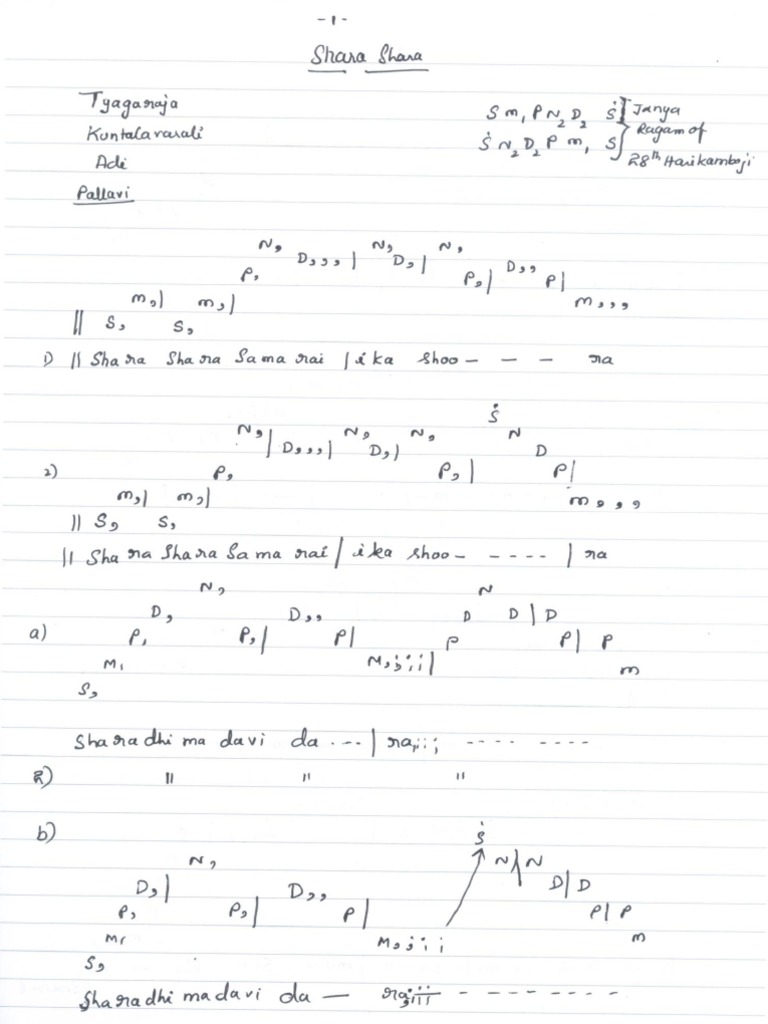 -1-
Shara Shara
Tyagaraja
Kuntalavarali
Adi
Pallavi
S m₁ P N₂ D₂ Ṡ
Ṡ N₂ D₂ P m₁ S
Janya
Ragam of
28th Harikamboji
N, D,,, | N, D, | N,
P, P, | D,, P|
m,| m,| m,,,
|| S, S,
1) || Sha ra Sha ra Sa ma rai | i ka shoo - - - ra
Ṡ
N,| D,,,| N, D,| N, N D
2) P, P, | P|
m,| m,| m,,,
|| S, S,
|| Sha ra Sha ra Sa ma rai | i ka shoo - - - - - | ra
N, N
D, D,, D D | D
a) P, P,| P| P P| P
M, M,;;;| m
S,
Sha ra dhi ma da vi da - - - | ra,;;; - - - - - - - -
2) " " "
b) Ṡ
N, N | N
D,| D,, D | D
P, P,| P| P | P
M, M,;;; m
S,
Sha ra dhi ma da vi da — ra,;;; - - - - - - - -